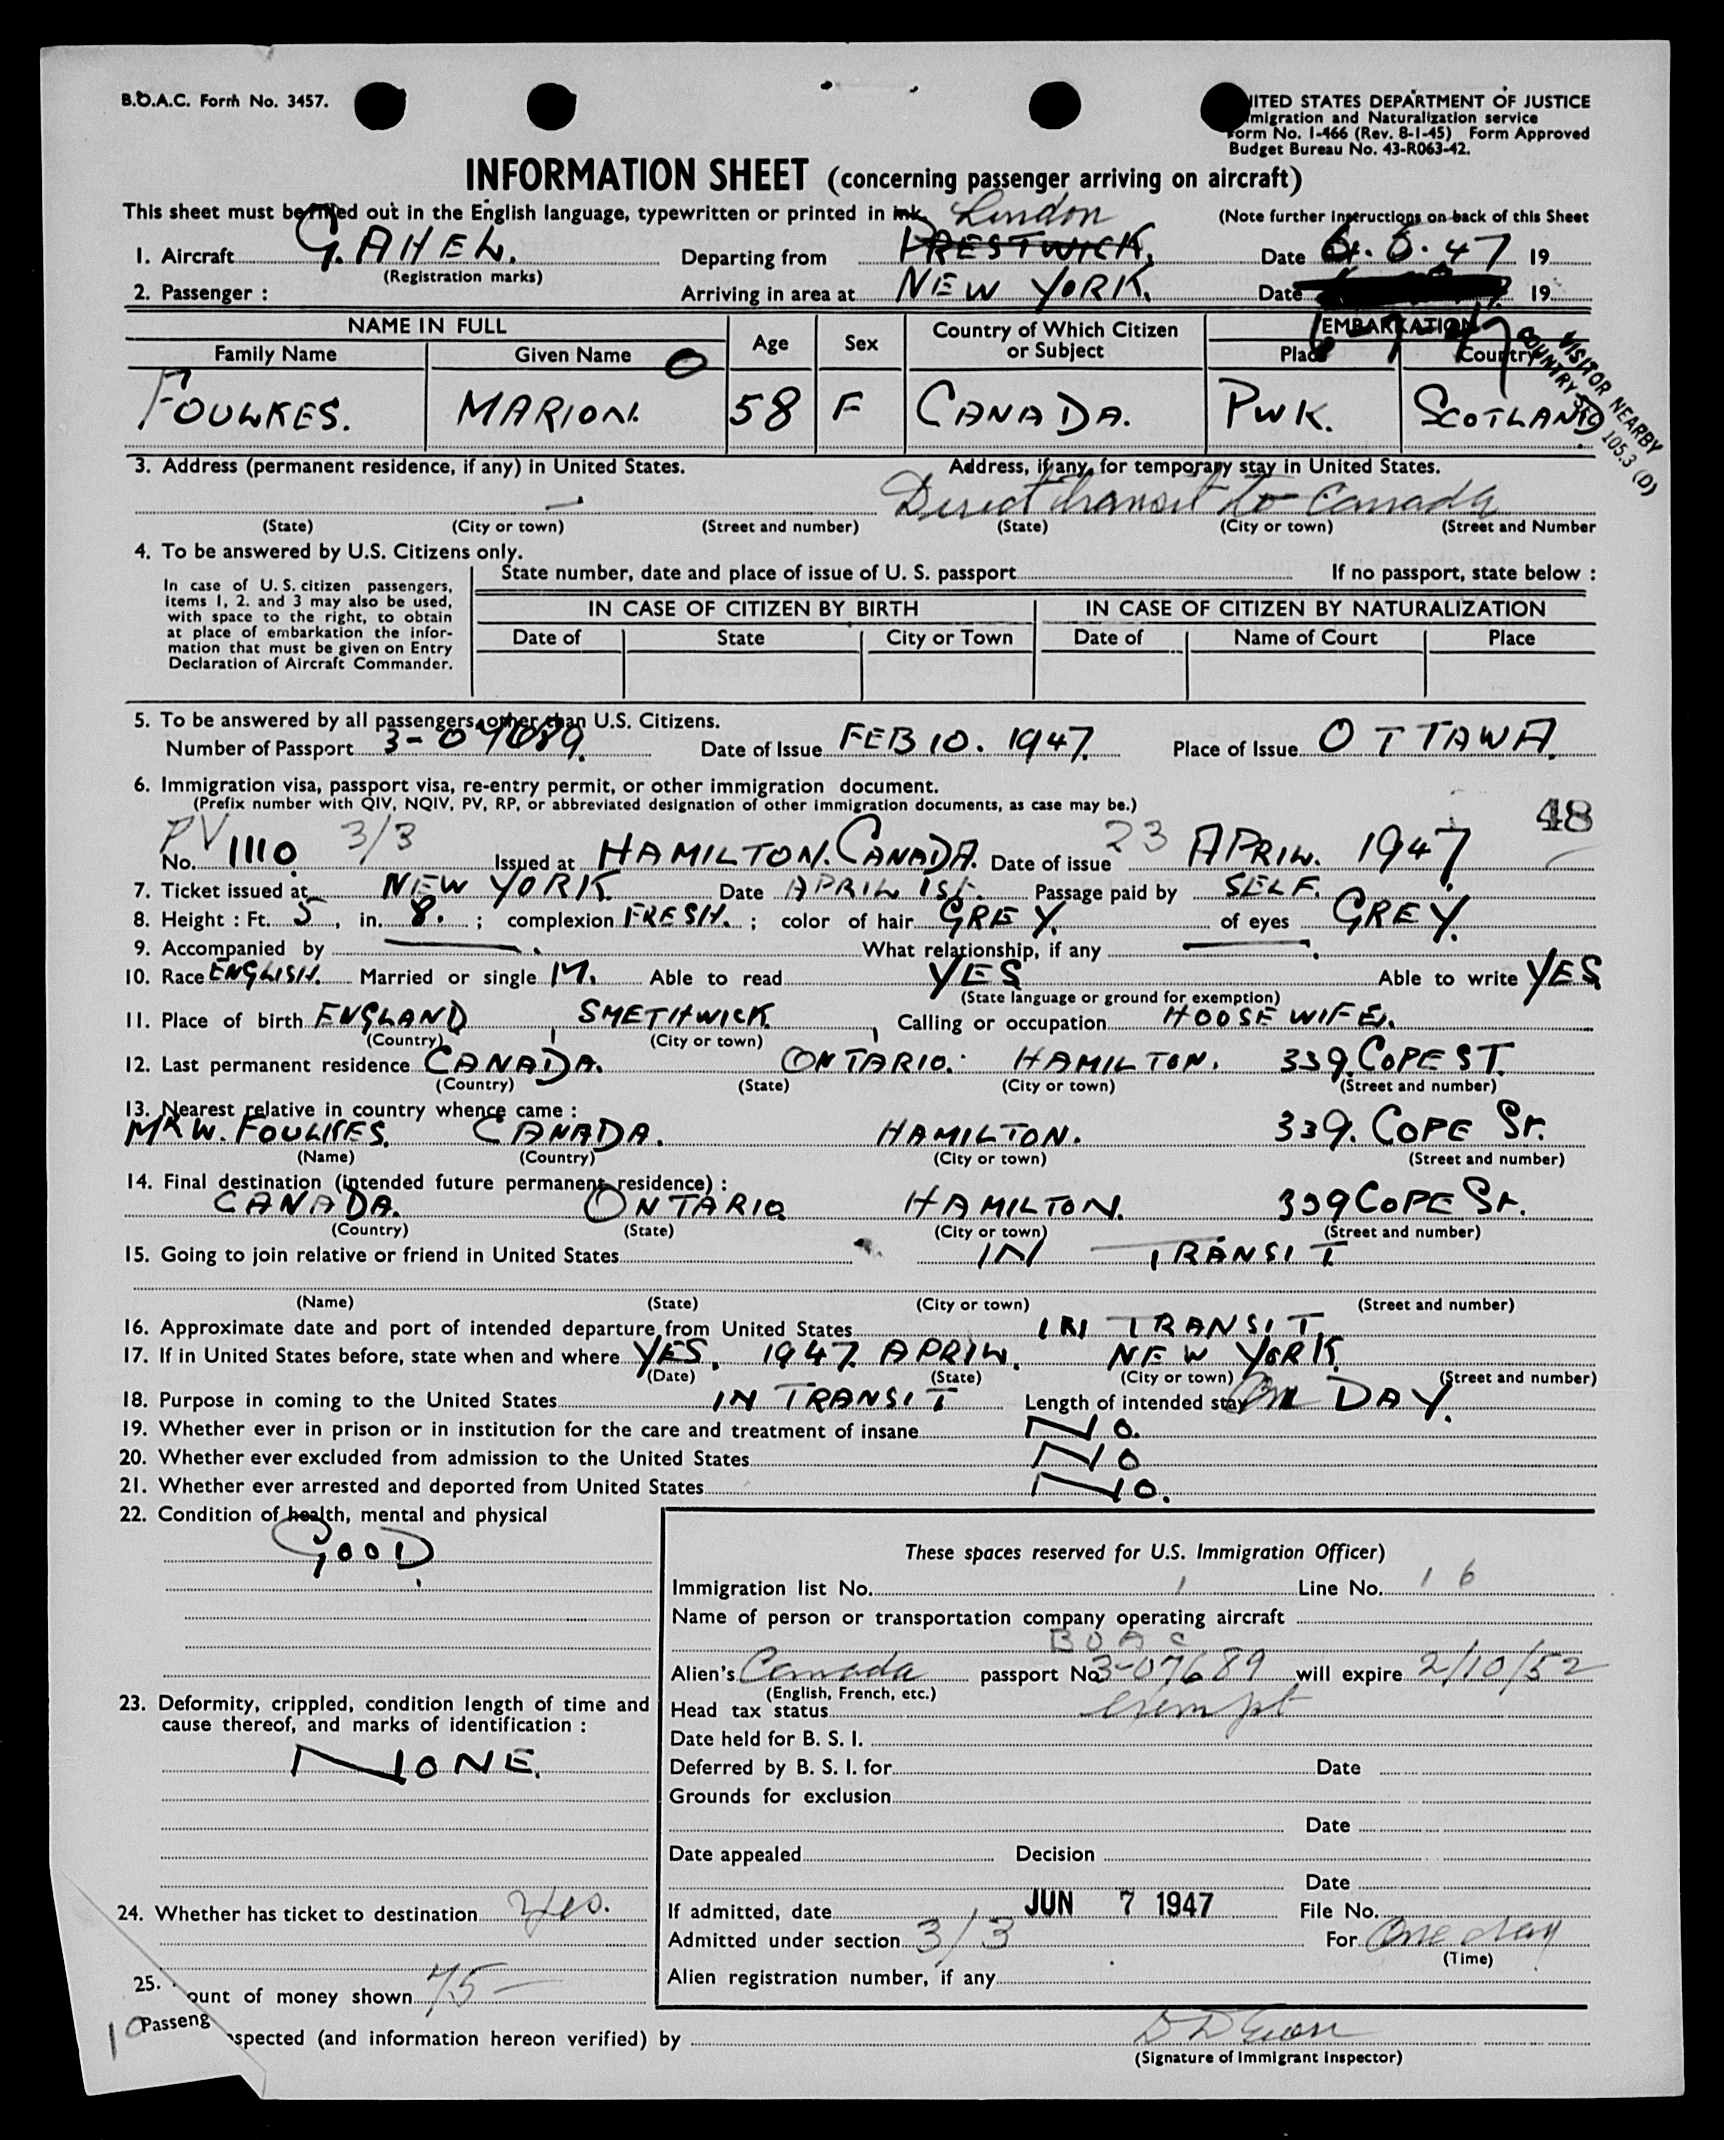 B.O.A.C. Form No. 3457.
UNITED STATES DEPARTMENT OF JUSTICE
Immigration and Naturalization service
Form No. I-466 (Rev. 8-1-45) Form Approved
Budget Bureau No. 43-R063-42.
INFORMATION SHEET (concerning passenger arriving on aircraft)
This sheet must be filled out in the English language, typewritten or printed in ink.
London
(Note further instructions on back of this Sheet
1. Aircraft G. AHEL. Departing from PRESTWICK. Date 6. 6. 47 19
(Registration marks)
2. Passenger : Arriving in area at NEW YORK. Date 19
6-7-47
NAME IN FULL Age Sex Country of Which Citizen or Subject EMBARKATION
Family Name Given Name Place Country
O
FOULKES. MARION. 58 F CANADA. PWK. SCOTLAND
VISITOR NEARBY
COUNTRY SEC 105.3 (D)
3. Address (permanent residence, if any) in United States. Address, if any, for temporary stay in United States.
— Direct transit to Canada
(State) (City or town) (Street and number) (State) (City or town) (Street and Number
4. To be answered by U.S. Citizens only.
In case of U.S. citizen passengers, items 1, 2. and 3 may also be used, with space to the right, to obtain at place of embarkation the information that must be given on Entry Declaration of Aircraft Commander.
State number, date and place of issue of U. S. passport If no passport, state below :
IN CASE OF CITIZEN BY BIRTH IN CASE OF CITIZEN BY NATURALIZATION
Date of State City or Town Date of Name of Court Place
5. To be answered by all passengers other than U.S. Citizens.
Number of Passport 3-07689. Date of Issue FEB 10. 1947. Place of Issue OTTAWA.
6. Immigration visa, passport visa, re-entry permit, or other immigration document.
(Prefix number with QIV, NQIV, PV, RP, or abbreviated designation of other immigration documents, as case may be.)
48
PV
No. 1110. 3/3 Issued at HAMILTON. CANADA. Date of issue 23 APRIL. 1947.
7. Ticket issued at NEW YORK. Date APRIL 1st. Passage paid by SELF.
8. Height : Ft. 5, in. 8. ; complexion FRESH. ; color of hair GREY. of eyes GREY.
9. Accompanied by —. What relationship, if any —.
10. Race ENGLISH. Married or single M. Able to read YES Able to write YES
(State language or ground for exemption)
11. Place of birth ENGLAND, SMETHWICK, Calling or occupation HOOSEWIFE.
(Country) (City or town)
12. Last permanent residence CANADA. ONTARIO. HAMILTON. 339. COPE ST.
(Country) (State) (City or town) (Street and number)
13. Nearest relative in country whence came :
MR W. FOULKES. CANADA. HAMILTON. 339. COPE ST.
(Name) (Country) (City or town) (Street and number)
14. Final destination (intended future permanent residence) :
CANADA. ONTARIO HAMILTON. 339 COPE ST.
(Country) (State) (City or town) (Street and number)
15. Going to join relative or friend in United States IN TRANSIT
(Name) (State) (City or town) (Street and number)
16. Approximate date and port of intended departure from United States IN TRANSIT
17. If in United States before, state when and where YES. 1947. APRIL. NEW YORK.
(Date) (State) (City or town) (Street and number)
18. Purpose in coming to the United States IN TRANSIT Length of intended stay One DAY.
19. Whether ever in prison or in institution for the care and treatment of insane NO.
20. Whether ever excluded from admission to the United States NO
21. Whether ever arrested and deported from United States NO.
22. Condition of health, mental and physical
GOOD.
23. Deformity, crippled, condition length of time and cause thereof, and marks of identification :
NONE.
24. Whether has ticket to destination Yes.
25. ount of money shown 75—
These spaces reserved for U.S. Immigration Officer)
Immigration list No. 1 Line No. 16
Name of person or transportation company operating aircraft
BOAC
Alien's Canada passport No. 3-07689 will expire 2/10/52
(English, French, etc.)
Head tax status exempt
Date held for B. S. I.
Deferred by B. S. I. for Date
Grounds for exclusion
Date
Date appealed Decision
Date
If admitted, date JUN 7 1947 File No.
Admitted under section 3/3 For One day
(Time)
Alien registration number, if any
10 Passeng spected (and information hereon verified) by
(Signature of Immigrant Inspector)